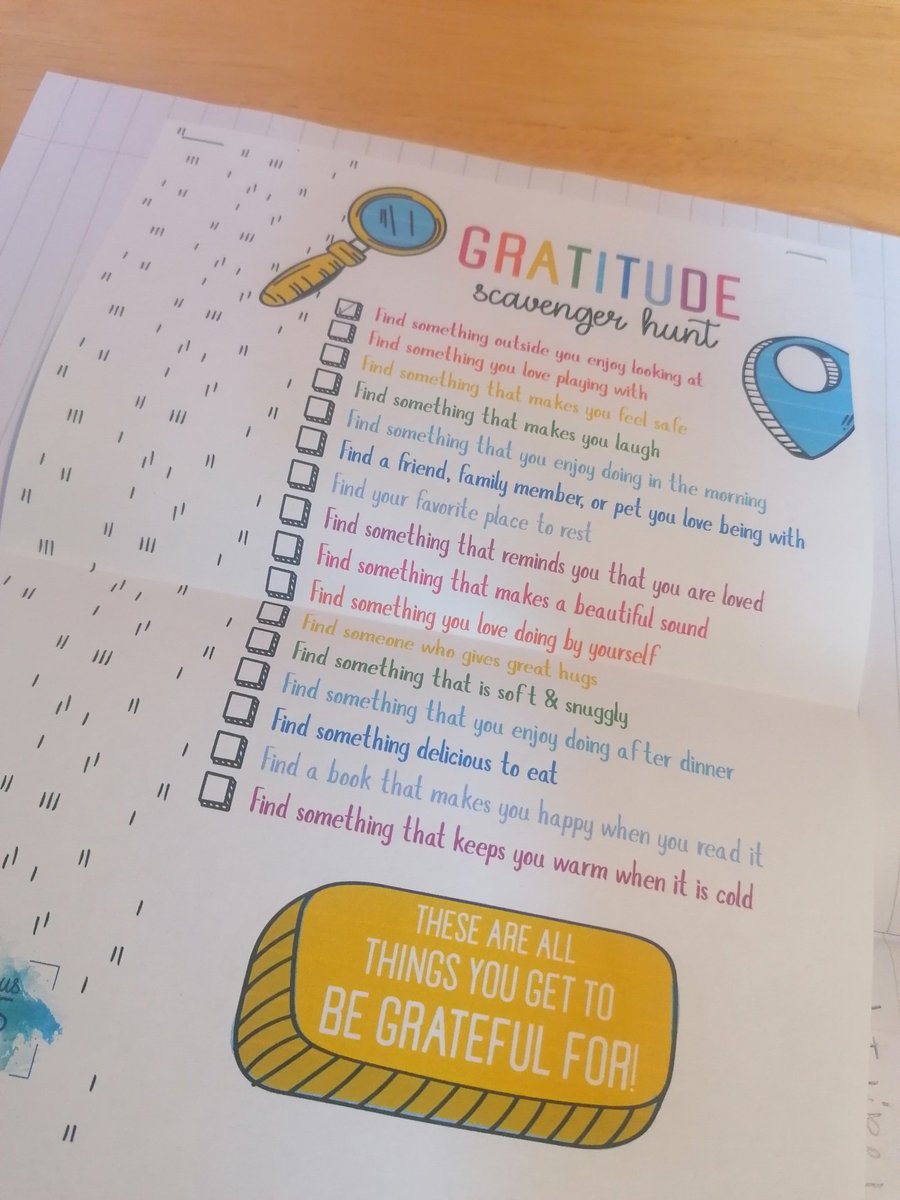 GRATITUDE
scavenger hunt
Find something outside you enjoy looking at
Find something you love playing with
Find something that makes you feel safe
Find something that makes you laugh
Find something that you enjoy doing in the morning
Find a friend, family member, or pet you love being with
Find your favorite place to rest
Find something that reminds you that you are loved
Find something that makes a beautiful sound
Find something you love doing by yourself
Find someone who gives great hugs
Find something that is soft & snuggly
Find something that you enjoy doing after dinner
Find something delicious to eat
Find a book that makes you happy when you read it
Find something that keeps you warm when it is cold
THESE ARE ALL
THINGS YOU GET TO
BE GRATEFUL FOR!